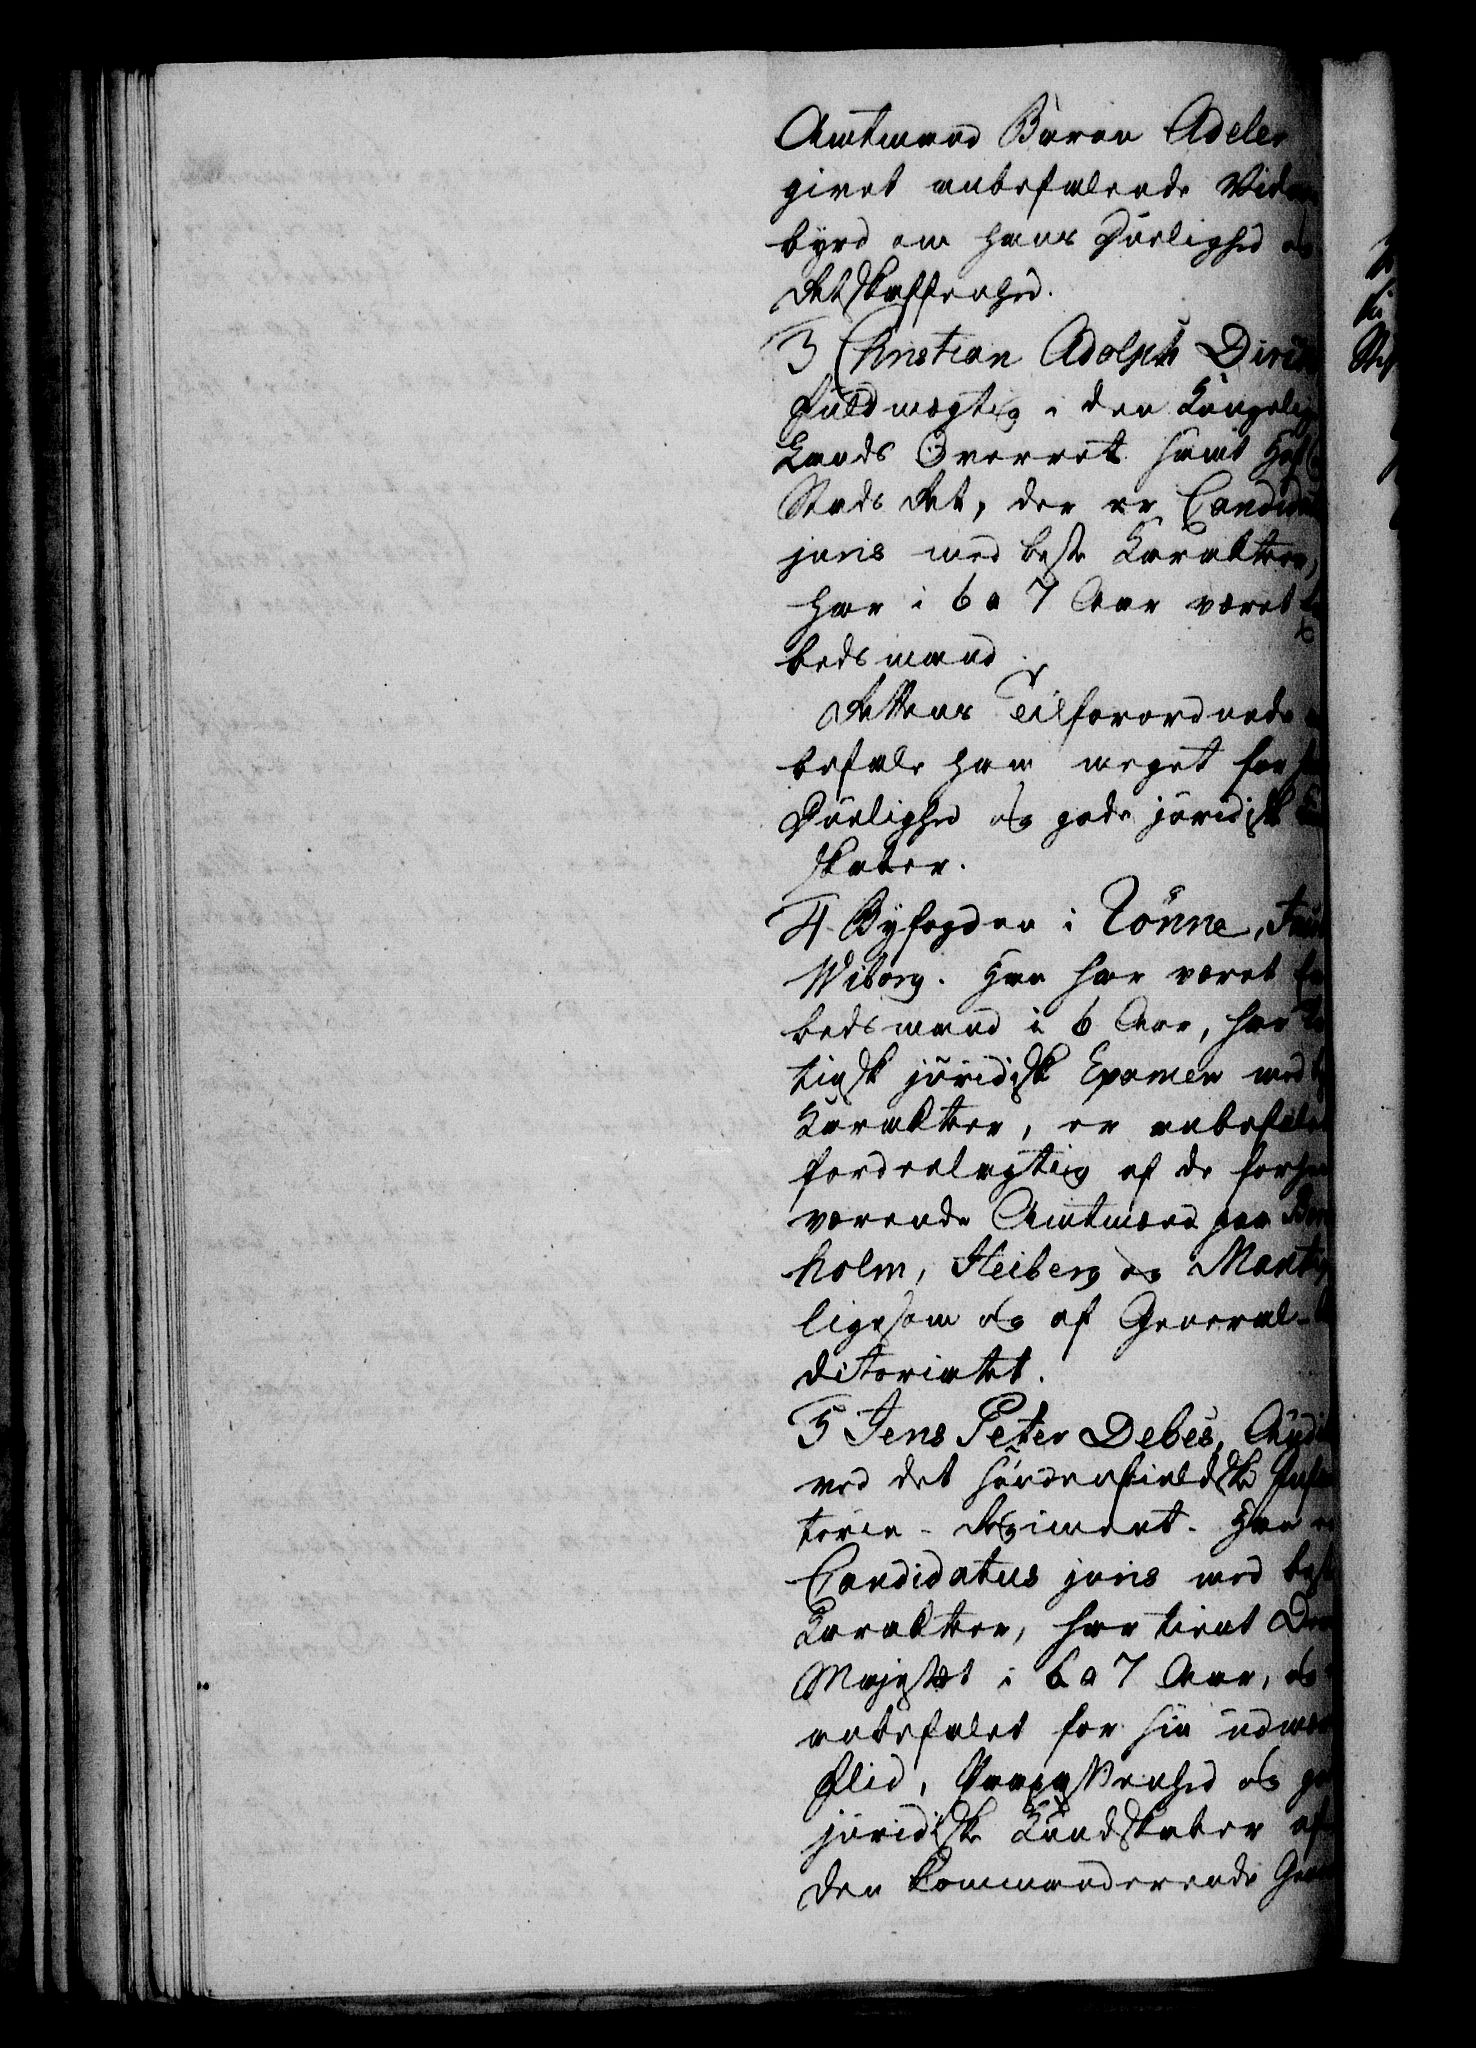 Amtmand Baron Adeler
givet anbefalende Vidnes
byrd om hans Duelighed og
Retskaffenhed.
3 Christian Adolph
Fuldmægtig i den Kongelige
Lands Overret samt Hof og
Stads Ret, der er Candidatus
juris med beste Karakteer,
har i 6 a 7 Aar været Em
bedsmand.
Rettens Tilforordnede an
befale ham meget for sin
Duelighed og gode juridiske Kund
skaber.
4 Byfogden i Rönne,
Wiborg. Han har været Em
bedsmand i 6 Aar, har la
tinsk juridisk Examen med
Karakteer, er anbefalet
fordeelagtig af de forhen
værende Amtmænd paa Born
holm, Heiberg og
ligesom og af General-Au
ditoriatet.
5 Jens Peter Debes, Auditeur
ved det söndenfieldske Infan
terie-Regiment. Han er
Candidatus juris med beste
Karakteer, har tient Deres
Majestæt i 6 a 7 Aar, og er
anbefalet for sin udmærkede
Flid, og gode
juridiske Kundskaber af
den Kommanderende General